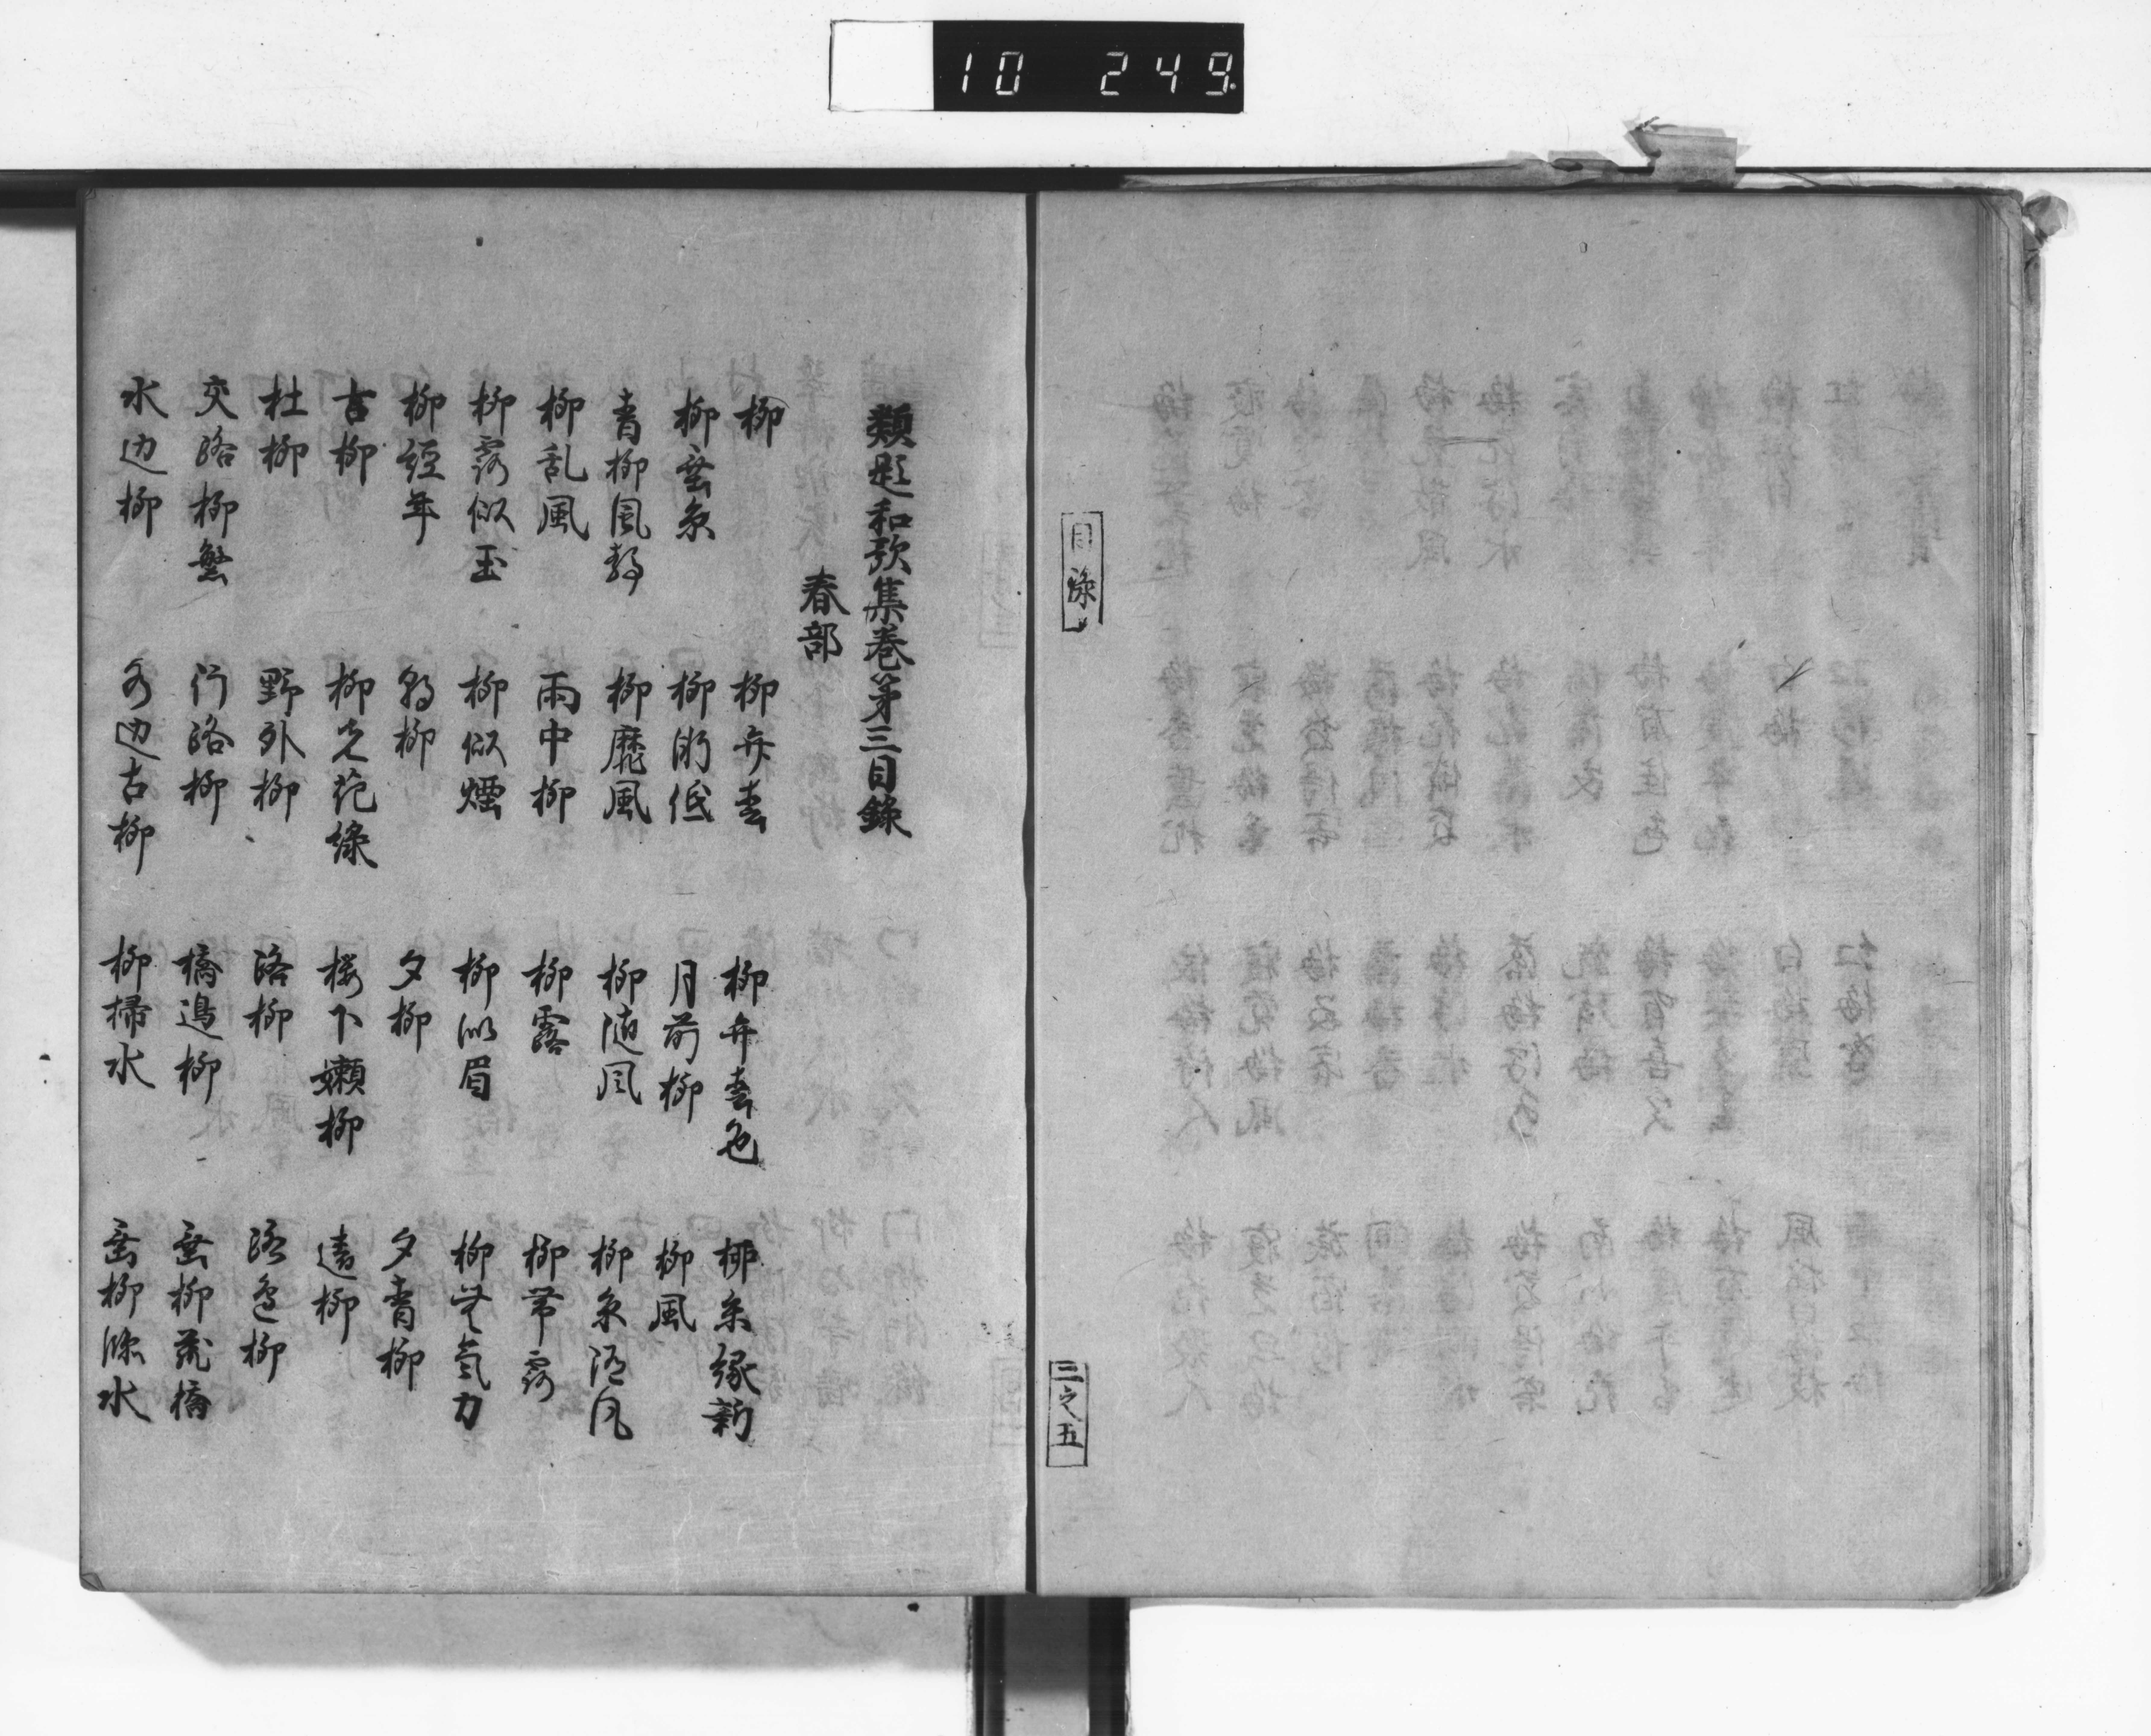 10 249
目録
三之五
類題和歌集巻第三目録
春部
柳 柳弁春 柳弁春色 柳糸縁新
柳垂糸 柳漸低 月前柳 柳風
青柳風静 柳靡風 柳随風 柳糸随風
柳乱風 雨中柳 柳露 柳帯露
柳露似玉 柳似煙 柳似眉 柳無気力
柳経年 朝柳 夕柳 夕青柳
古柳 柳先花緑 楼下嫩柳 遠柳
杜柳 野外柳 路柳 路邊柳
交路柳繁 行路柳 橋邊柳 垂柳蔵橋
水辺柳 水辺古柳 柳掃水 垂柳深水